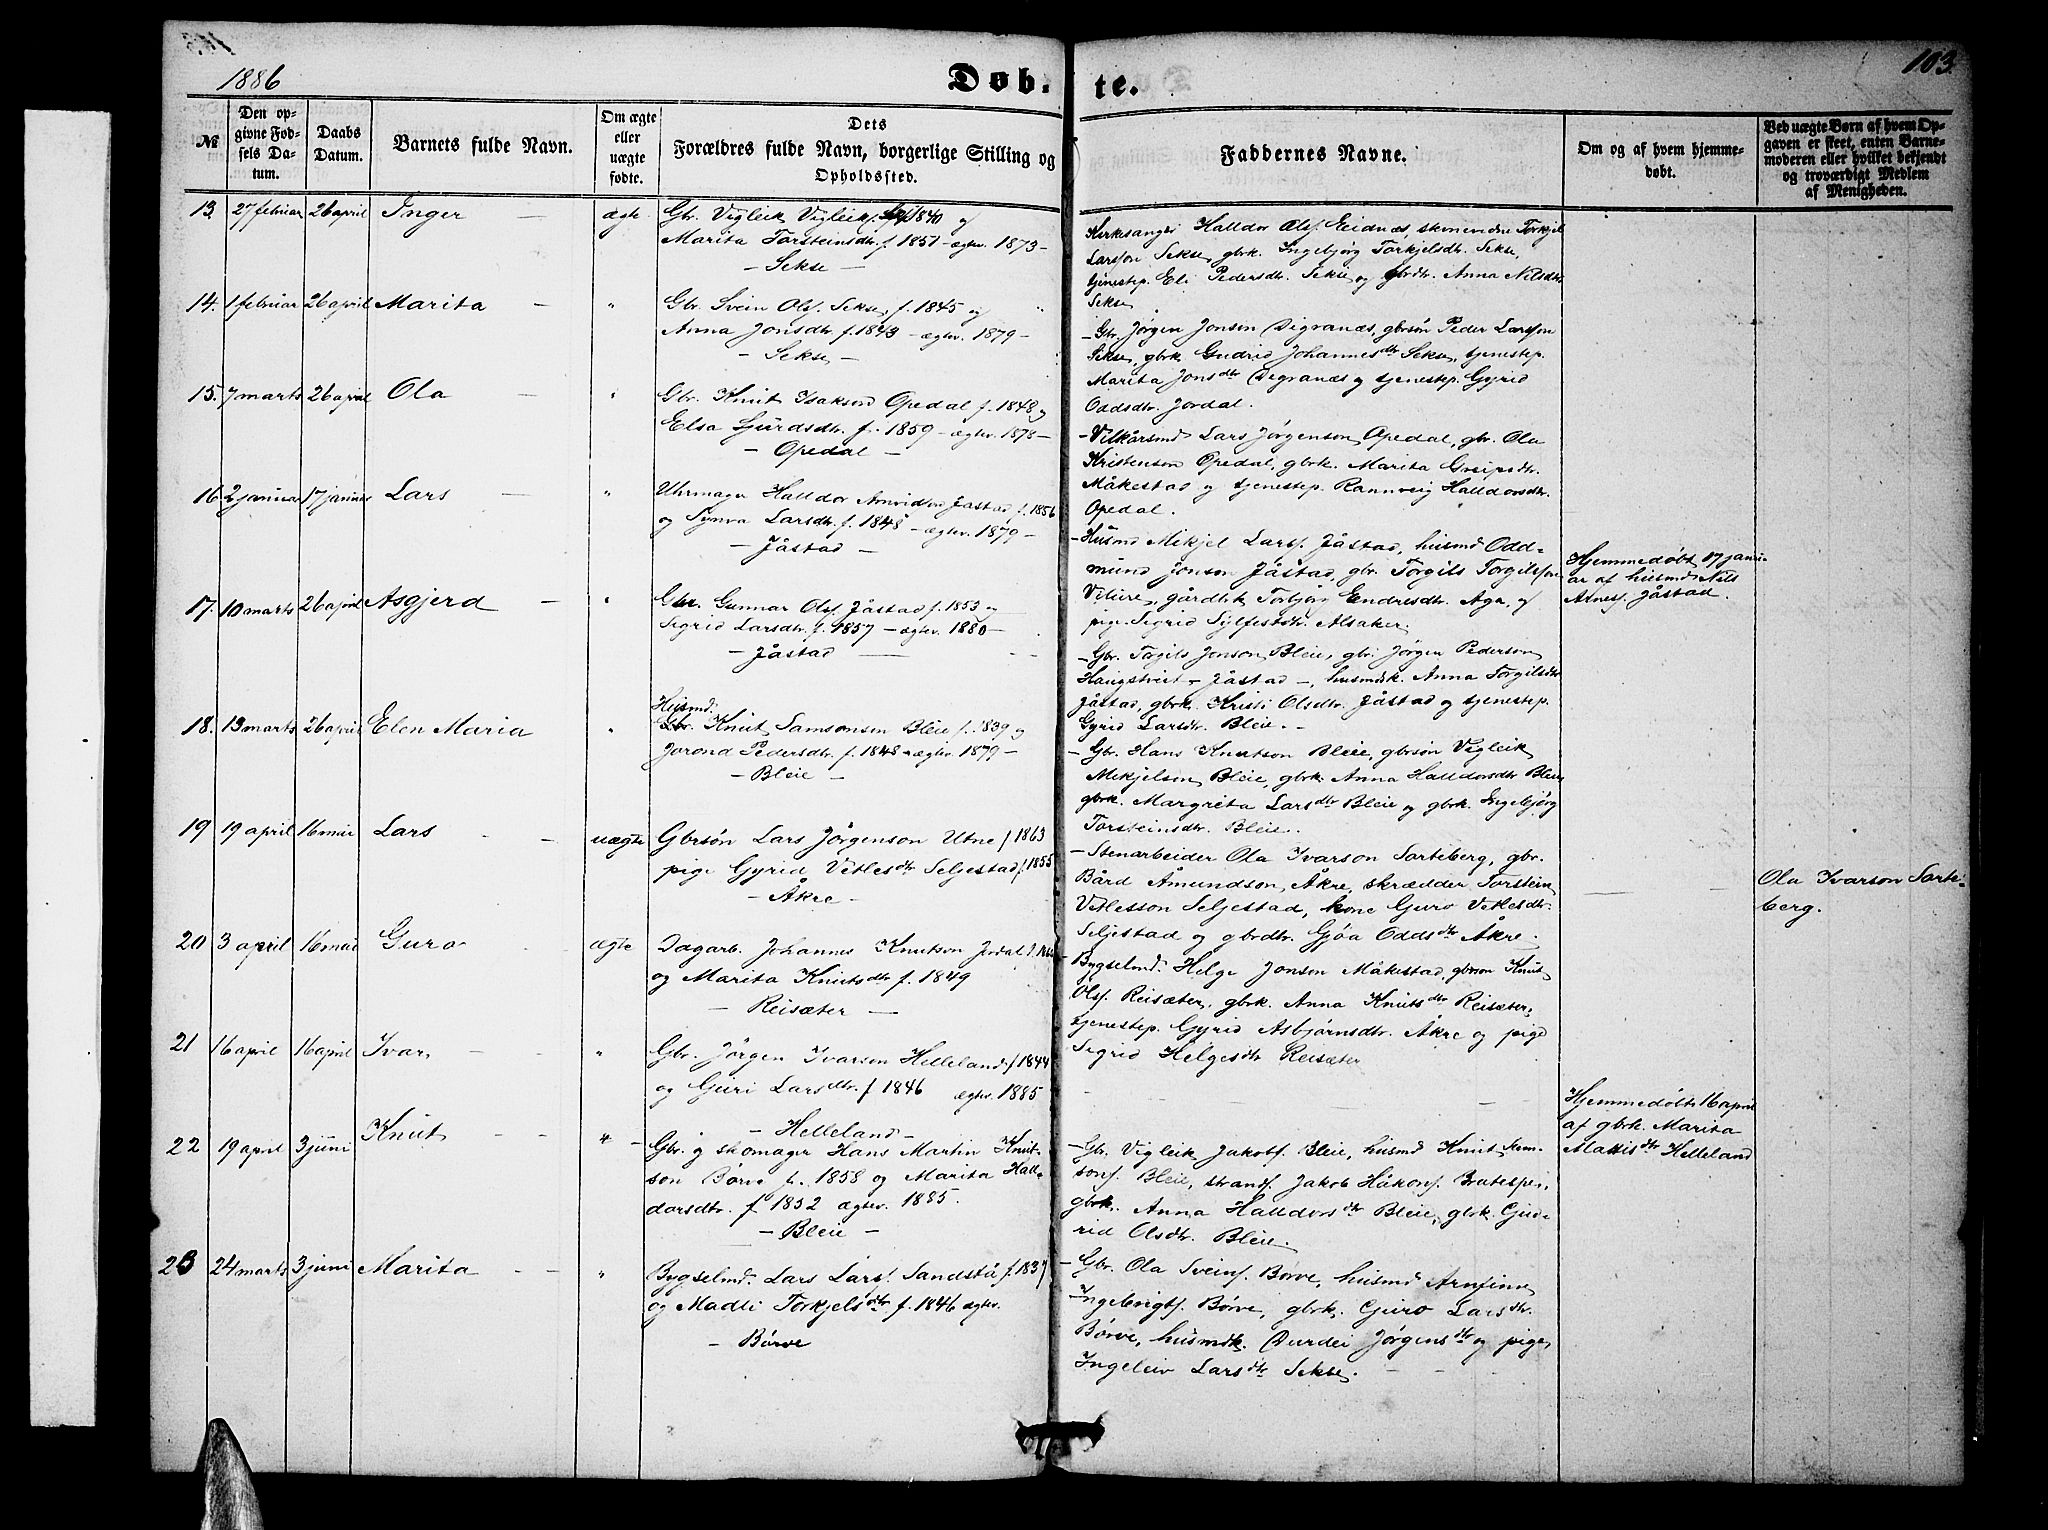 1886
Døbte.
103.
№
Den opgivne Fødsels Datum.
Daabs Datum.
Barnets fulde Navn.
Om ægte eller uægte fødte.
Dets Forældres fulde Navn, borgerlige Stilling og Opholdssted.
Faddernes Navne.
Om og af hvem hjemmedøbt.
Ved uægte Børn af hvem Opgaven er skeet, enten Barnemoderen eller hvilket bekjendt og troværdigt Medlem af Menigheden.
13. 27 februar 26 april Inger — ægte
Gbr. Vigleik Vigleiks. f. 1840 og
Marita Torsteinsdtr. f. 1851 – ægtev. 1873 –
– Sekse –
Kirkesanger Halldor Ols. Eidnæs, Torkjel
Larsson Sekse, gbrk. Ingebjørg Torkjelsdtr. Sekse,
tjenestep. Eli Pedersdtr. Sekse og gbrdtr. Anna Nilsdtr.
Sekse
14. 1 februar 26 april Marita — "
Gbr. Svein Ols. Sekse, f. 1845 og
Anna Jonsdtr. f. 1843 – ægtev. 1879 –
– Sekse –
– Gbr. Jørgen Jonson Digranæs, gbrsøn Peder Larsson
Sekse, gbrk. Gudrid Johannesdtr. Sekse, tjenestep.
Marita Jonsdtr. Digranæs og tjenestep. Gyrid
Oddsdtr. Jordal.
15. 7 marts 26 april Ola — "
Gbr. Knut Isakson Opedal f. 1848 og
Elsa Sjurdsdtr. f. 1859 – ægtev. 1878 –
– Opedal –
– Vilkårsmd. Lars Jørgenson Opedal, gbr. Ola
Kristenson Opedal, gbrk. Marita Greipsdtr.
Måkestad og tjenestep. Rannveig Halldorsdtr.
Opedal.
16. 2 januar 17 januar Lars — "
Uhrmager Halldor Arnvidson Jåstad f. 1856
og Synva Larsdtr. f. 1848 – ægtev. 1879 –
– Jåstad –
– Husmd Mikjel Lars. Jåstad, husmd Odd-
mund Jonson Jåstad, gbr. Torgils Torgilsson
Vilure, gårdbrk Torbjørg Endresdtr. Aga, og
pige Sigrid Sylfestdtr. Alsaker.
Hjemmedøbt 17 janu-
ar af husmd Nils
Arnes. Jåstad.
17. 10 marts 26 april Asgjerd — "
Gbr. Gunnar Ols. Jåstad f. 1853 og
Sigrid Larsdtr. f. 1857 – ægtev. 1880 –
– Jåstad –
– Gbr. Torgils Jonson Bleie, gbr. Jørgen Pederson
Haugstveit – Jåstad –, husmdsk. Anna Torgilsdtr.
Jåstad, gbrk. Kristi Olsdtr. Jåstad og tjenestep.
Gyrid Larsdtr. Bleie. –
18. 13 marts 26 april Elen Maria "
Husmd.
Gbr. Knut Samsonsen Bleie f. 1839 og
Jorond Pedersdtr. f. 1848 – ægtev. 1879 –
– Bleie –
– Gbr. Hans Knutson Bleie, gbrsøn Vigleik
Mikjelson Bleie, gbrk. Anna Halldorsdtr Bleie,
gbrk. Margreta Larsdtr Bleie og gbrk. Ingebjørg
Torsteinsdtr. Bleie.
19 19 april 16 mai Lars — uægte
Gbrsøn Lars Jørgenson Utne f 1863
pige Gyrid Vetlesdtr Seljestad f. 1855
– Åkre –
– Stenarbeider Ola Ivarson Sarteberg, gbr.
Bård Åmundson, Åkre, skrædder Torstein
Vetlesson Seljestad, kone Guro Vetlesdtr.
Seljestad og gbrdtr. Gjøa Oddsdtr Åkre.
Ola Ivarson Sarte-
berg.
20 3 april 16 mai Guro ægte
Dagarb. Johannes Knutson Jordal f.
og Marita Knutsdtr f. 1849
– Reisæter –
Bygselmd. Helge Jonson Måkestad, gbrsøn Knut
Ols. Reisæter, gbrk. Anna Knutsdtr Reisæter,
tjenestep. Gyrid Asbjørnsdtr. Åkre og pige
Sigrid Helgesdtr Reisæter
21 16 april 16 april Ivar — "
Gbr. Jørgen Ivarson Helleland f 1844
og Guri Larsdtr. f 1846 ægtev. 1885
– Helleland –
Hjemmedøbt 16 april
af gbrk. Marita
Mattisdtr Helleland
22 19 april 3 juni Knut — "
Gbr. og skomager Hans Martin Knut-
son Børve f. 1858 og Marita Hall-
dorsdtr. f 1852 ægtev. 1885.
– Bleie –
– Gbr. Vigleik Jakobs. Bleie, husmd Knut Sam-
sons. Bleie, strands. Jakob Håkons. Bratespe,
gbrk. Anna Halldorsdtr Bleie, gbrk. Gud-
rid Olsdtr. Bleie.
23 24 marts 3 juni Marita — "
Bygselmd. Lars Lars. Sandstå f. 1837
og Madli Torkjelsdtr f. 1846 ægtev.
– Børve
– Gbr. Ola Sveins. Børve, husmd Arnfinn
Ingebrigts. Børve, gbrk. Guro Larsdtr.
Børve, husmdk. Durdei Jørgensdtr og pige
Ingeleiv Larsdtr Sekse. –